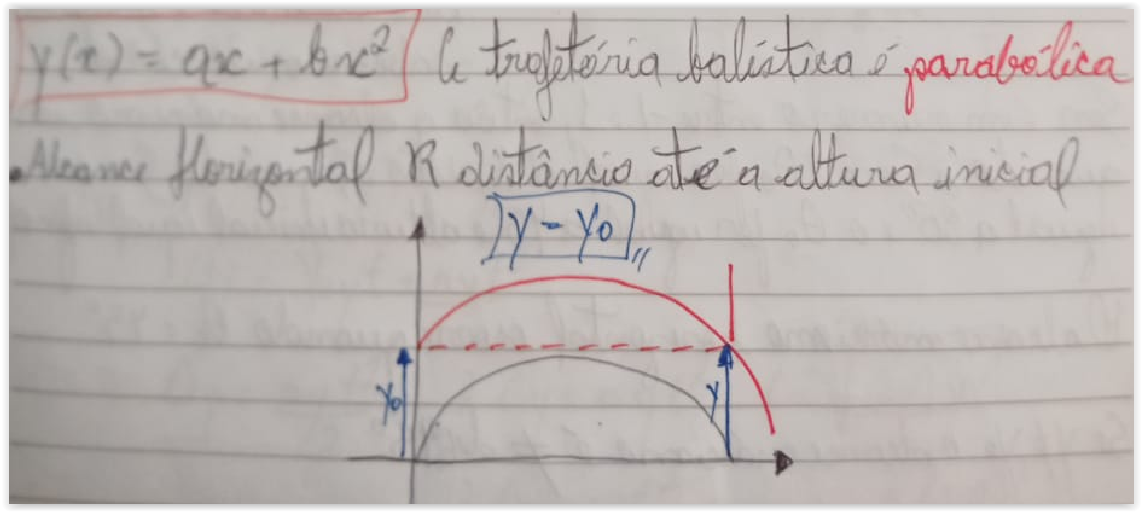 y(x) = ax + bx² A trajetória balística é parabólica
. Alcance Horizontal R distância até a altura inicial
y - y₀ //
y₀
y